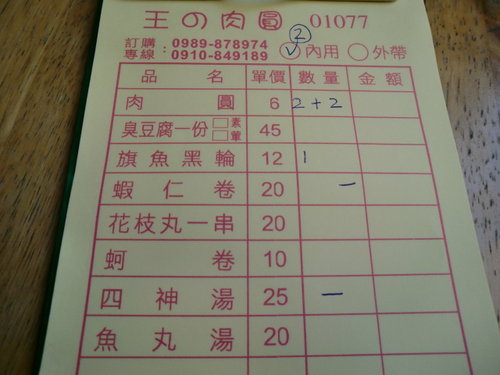 王の肉圓 01077
訂購專線：0989-878974
0910-849189
② ✓內用 ○外帶
品名 單價 數量 金額
肉圓 6 2+2
臭豆腐一份 □素 □葷 45
旗魚黑輪 12 1
蝦仁卷 20 一
花枝丸一串 20
蚵卷 10
四神湯 25 一
魚丸湯 20